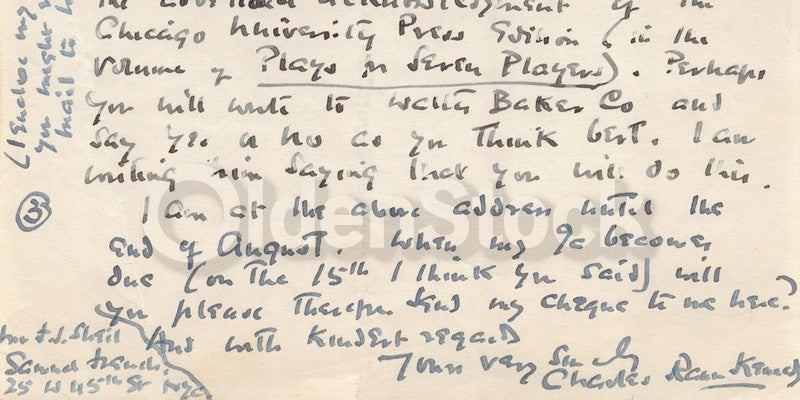 acknowledgment of the
Chicago University Press Edition (in the
Volume of Plays for Seven Players). Perhaps
you will write to Walter Baker Co and
say yes or no as you think best. I am
writing him saying that you will do this.
I am at the above address until the
end of August. When my a/c becomes
due (on the 15th I think you said) will
you please therefore send my cheque to me here?
And with kindest regards
Yours very sincerely
Charles Rann Kennedy
(I enclose my
you might
mail to
3
Samuel French,
25 W 45th St NYC
OldenStock